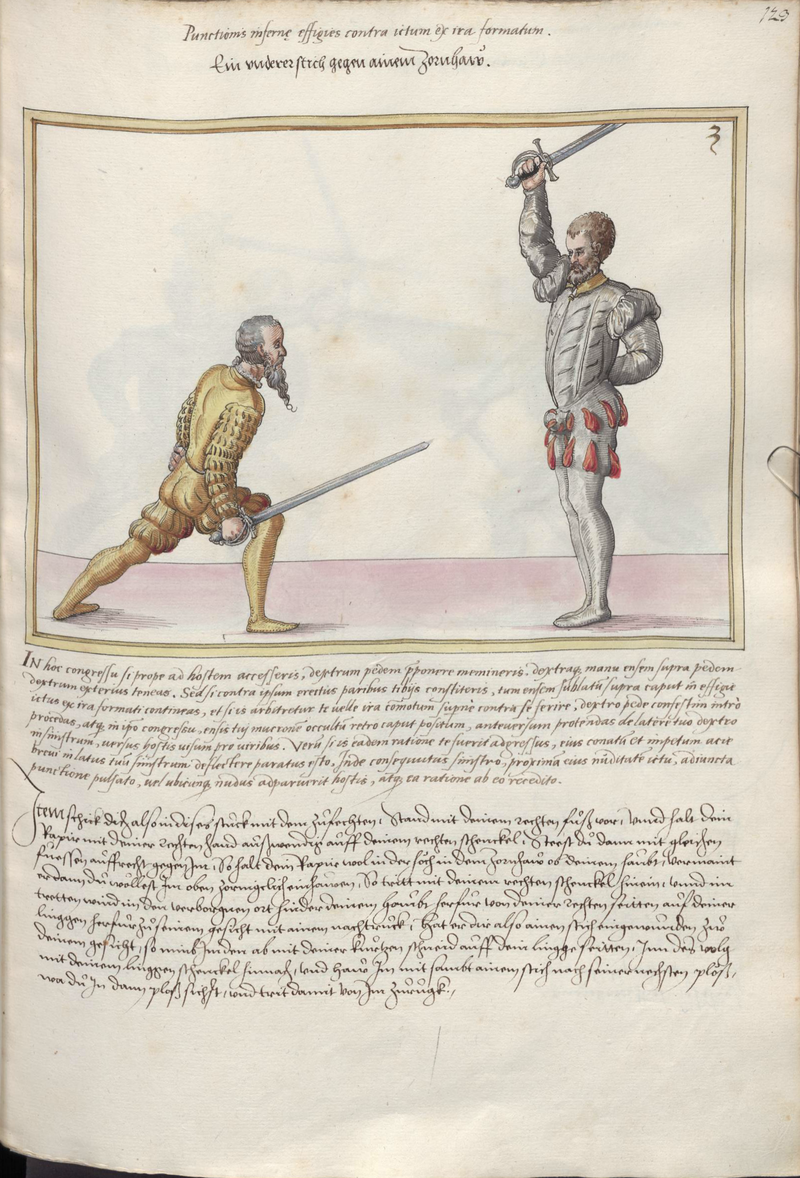 123
Punctionis infernę effigies contra ictum ex ira formatum.
Ein underer stich gegen ainem Zornhaw.
3
IN hoc congressu si prope ad hostem accesseris, dextrum pedem pponere memineris. dextraq; manu ensem supra pedem
dextrum exterius teneas. Sed si contra ipsum erectus paribus tibijs constiteris, tum ensem sublatū supra caput in effigiē
ictus ex ira formati contineas, et si is arbitretur te uelle ira comotum supne contra se ferire, dextro pede confestim intrò
procedas, atq; in ipō congressu, ensis tuj mucrone occultū retro caput positum, anteuersum protendas de latere tuo dextro
in sinistrum, versus hostis uisum pro uiribus. Verū si is eadem ratione te fuerit adgressus, eius conatū et impetum acie
breui in latus tuū sinistrum deflectere paratus esto. Inde consequutus sinistro, proxima eius nuditate ictu, adiuncta
punctione pulsato, uel ubicunq; nudus adparuerit hostis, atq; ea ratione ab eo recedito.
Item schick dich also in dises stuck mit dem zufechten, Stand mit deinem rechten fuß vor, Unnd halt dein
Rapir mit deiner rechten hand außwendig auff deinem rechten schenckel, Steest du dann mit gleichen
fuessen auffrecht gegen Im, So halt dein Rapir wol in der höch in dem Zornhaw ob deinem haubt, vermaint
er dann du wöllest Im oben zornigclich einhawen, So tritt mit deinem rechten schenckel hinein, unnd im
tretten wind in den verborgnen ort hinder deinem haubt herfur von deiner rechten seitten auf deiner
linggen herfür zu seinem gesicht mit ainem nachtruck, Hat er dir also ainen stich eingewunden zu
deinem gesicht, so nimb In den ab mit deiner kurtzen schneid auff dein lingge seitten, Inn des volg
mit deinem linggen schenckel hinnach, und haw In mit sambt ainem stich nach seiner nechsten plöß,
wa du In dann ploß sichst, und trit damit von Im zurugk.